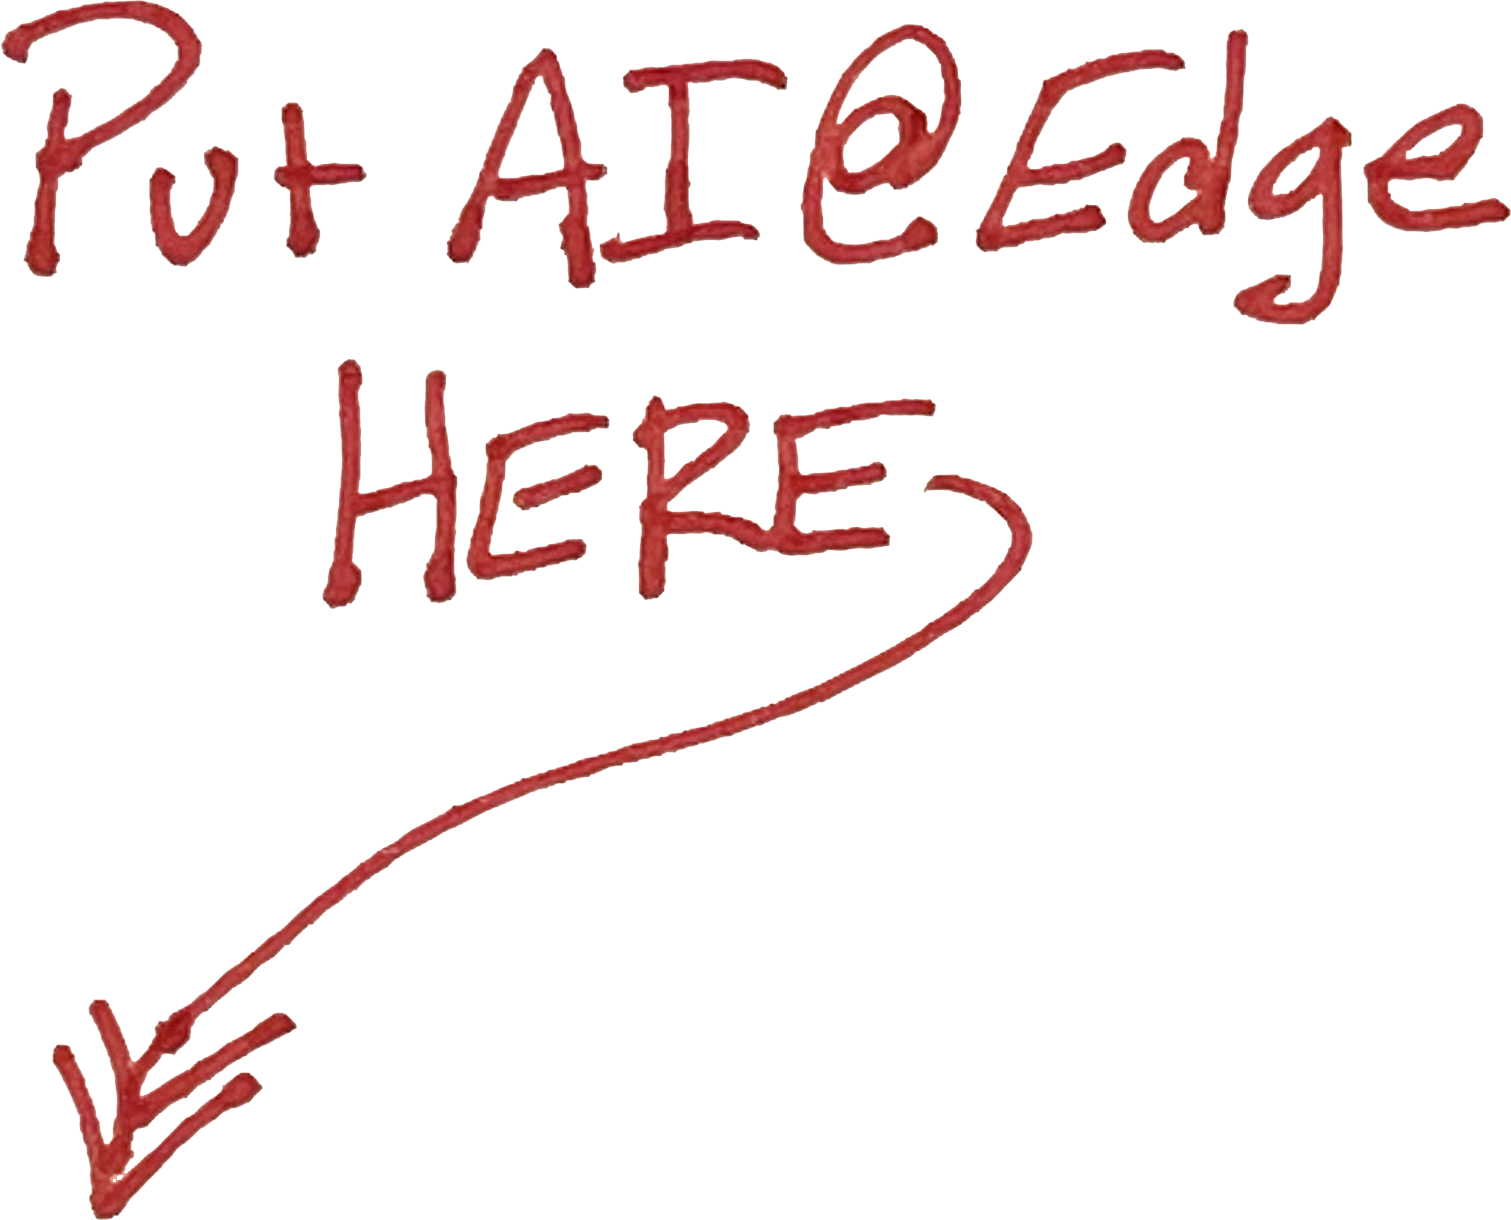 Put AI@Edge
HERE